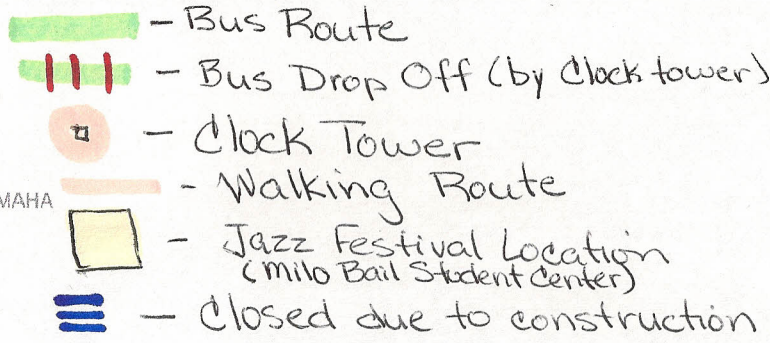 - Bus Route
- Bus Drop Off (by Clock tower)
- Clock Tower
- Walking Route
MAHA
- Jazz Festival Location
(Milo Bail Student Center)
- Closed due to construction